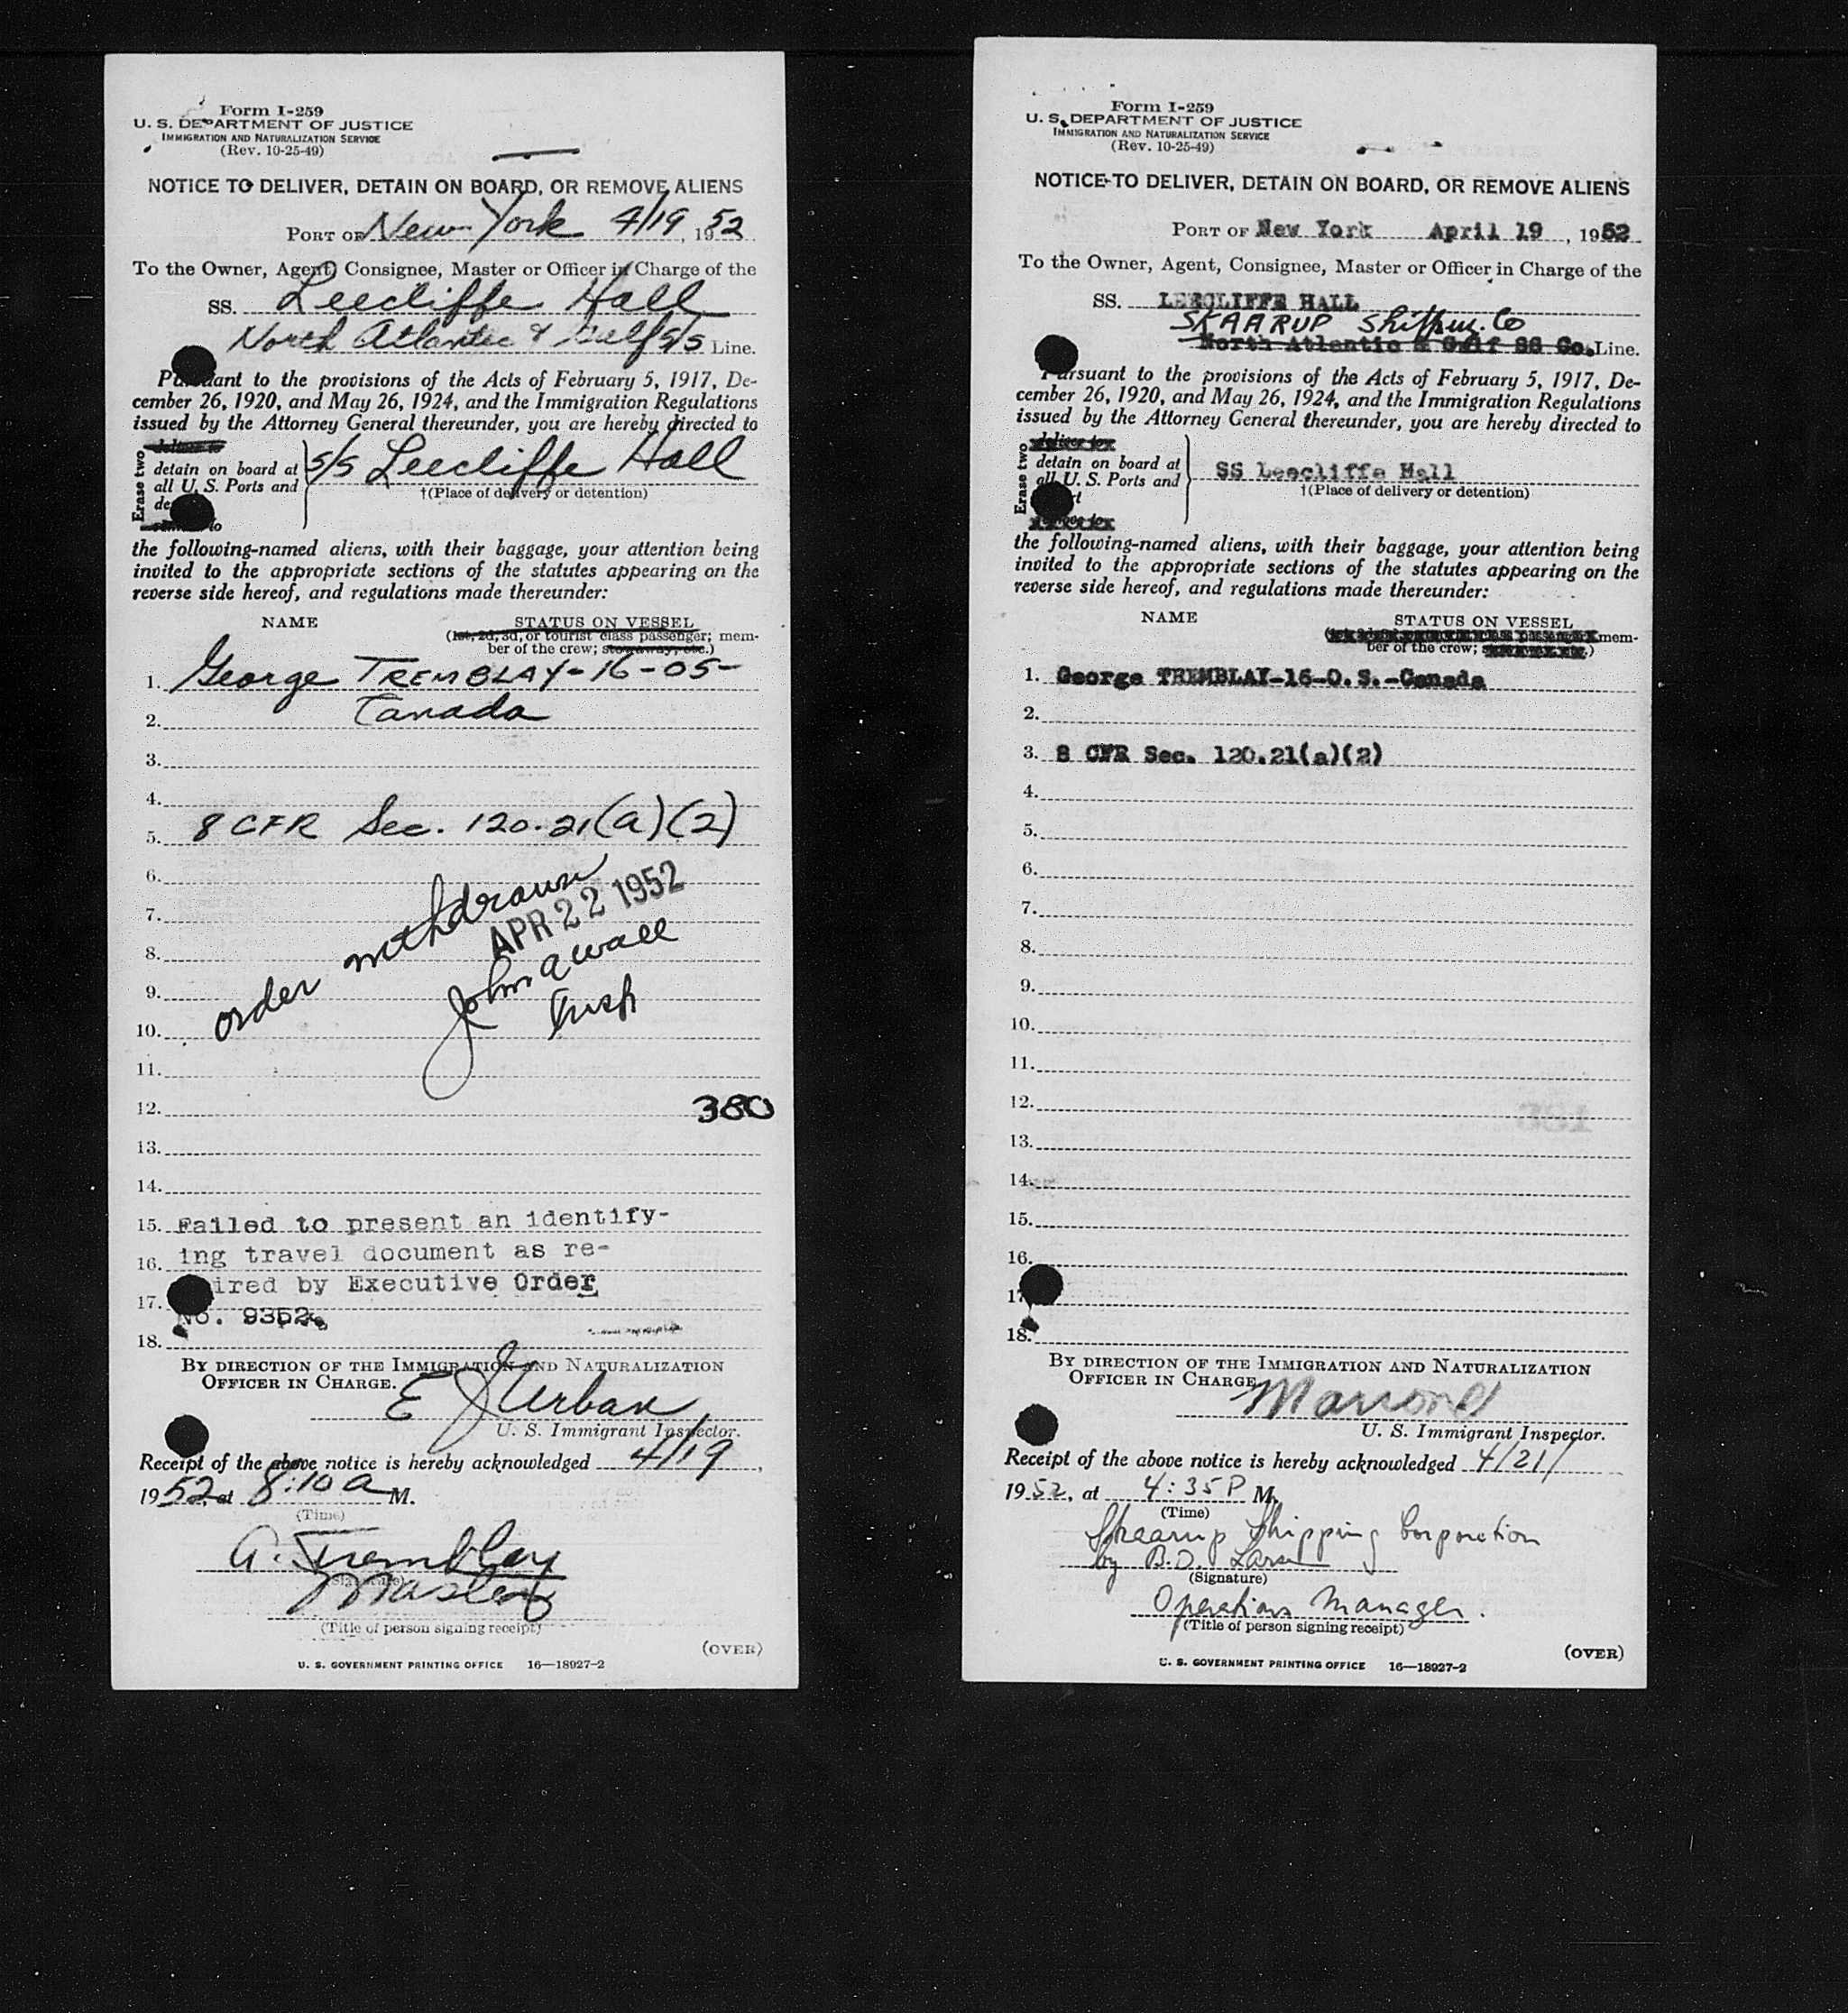 Form I-259
U. S. DEPARTMENT OF JUSTICE
IMMIGRATION AND NATURALIZATION SERVICE
(Rev. 10-25-49)
NOTICE TO DELIVER, DETAIN ON BOARD, OR REMOVE ALIENS
PORT OF New York 4/19, 1952
To the Owner, Agent, Consignee, Master or Officer in Charge of the
SS. Leecliffe Hall
North Atlantic & Gulf S/S Line.
Pursuant to the provisions of the Acts of February 5, 1917, De-
cember 26, 1920, and May 26, 1924, and the Immigration Regulations
issued by the Attorney General thereunder, you are hereby directed to
Erase two
deliver to
detain on board at
all U. S. Ports and
de
to
S/S Leecliffe Hall
†(Place of delivery or detention)
the following-named aliens, with their baggage, your attention being
invited to the appropriate sections of the statutes appearing on the
reverse side hereof, and regulations made thereunder:
NAME STATUS ON VESSEL
(1st, 2d, 3d, or tourist class passenger; mem-
ber of the crew; stowaway, etc.)
1. George TREMBLAY-16-OS-
2. Canada
3.
4.
5. 8 CFR Sec. 120.21(a)(2)
6.
7.
8.
9.
10.
order withdrawn
APR 22 1952
John A Wall
Insp
11.
12. 380
13.
14.
15. Failed to present an identify-
16. ing travel document as re-
17. ired by Executive Order
No. 9352.
18.
BY DIRECTION OF THE IMMIGRATION AND NATURALIZATION
OFFICER IN CHARGE.
E J Urban
U. S. Immigrant Inspector.
Receipt of the above notice is hereby acknowledged 4/19,
1952, at 8:10 a M.
(Time)
G. Tremblay
(Signature)
Master
(Title of person signing receipt)
(OVER)
U. S. GOVERNMENT PRINTING OFFICE 16—18927-2
Form I-259
U. S. DEPARTMENT OF JUSTICE
IMMIGRATION AND NATURALIZATION SERVICE
(Rev. 10-25-49)
NOTICE TO DELIVER, DETAIN ON BOARD, OR REMOVE ALIENS
PORT OF New York April 19, 1952
To the Owner, Agent, Consignee, Master or Officer in Charge of the
SS. LEECLIFFE HALL
SKAARUP Shippin. Co
North Atlantic & Gulf SS Co. Line.
Pursuant to the provisions of the Acts of February 5, 1917, De-
cember 26, 1920, and May 26, 1924, and the Immigration Regulations
issued by the Attorney General thereunder, you are hereby directed to
Erase two
deliver to
detain on board at
all U. S. Ports and
SS Leecliffe Hall
†(Place of delivery or detention)
the following-named aliens, with their baggage, your attention being
invited to the appropriate sections of the statutes appearing on the
reverse side hereof, and regulations made thereunder:
NAME STATUS ON VESSEL
mem-
ber of the crew;
1. George TREMBLAY-16-O.S.-Canada
2.
3. 8 CFR Sec. 120.21(a)(2)
4.
5.
6.
7.
8.
9.
10.
11.
12.
13.
14.
15.
16.
17
18.
BY DIRECTION OF THE IMMIGRATION AND NATURALIZATION
OFFICER IN CHARGE
U. S. Immigrant Inspector.
Receipt of the above notice is hereby acknowledged 4/21/
1952, at 4:35 P M.
(Time)
Skaarup Shipping Corporation
by B.D.
(Signature)
Operations Manager.
(Title of person signing receipt)
(OVER)
U. S. GOVERNMENT PRINTING OFFICE 16—18927-2